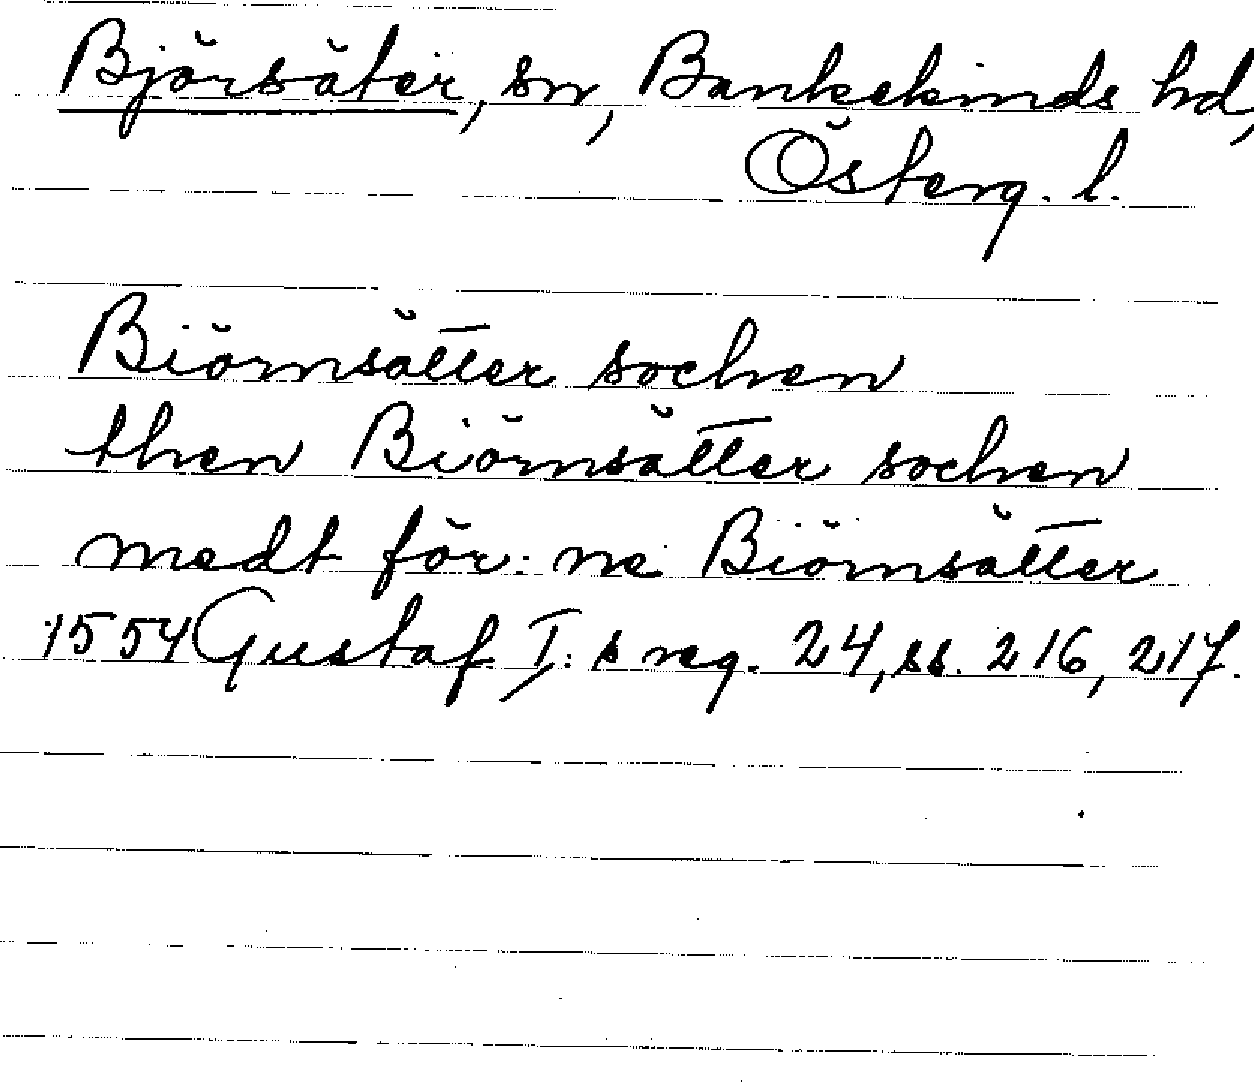 Björsäter, sn, Bankekinds hd,
Österg. l.
Biörnsätter sochen
then Biörnsätter sochen
medt för: ne Biörnsätter
1554 Gustaf I:s reg. 24, ss. 216, 217.